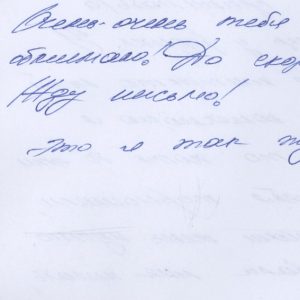 Очень-очень тебя
обнимаю! До скор
Жду письмо!
Это я так